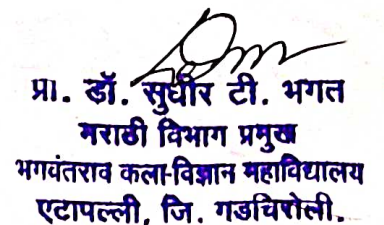 प्रा. डॉ. सुधीर टी. भगत
मराठी विभाग प्रमुख
भगवंतराव कला-विज्ञान महाविद्यालय
एटापल्ली, जि. गडचिरोली.